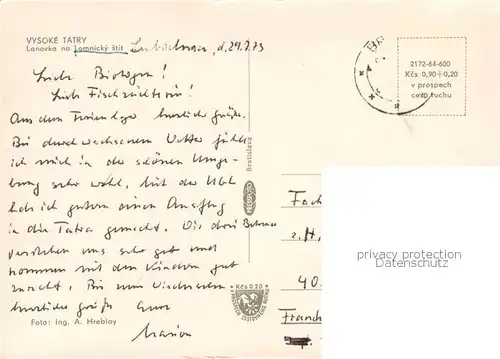 VYSOKÉ TATRY
Lanovka na Lomnický štít
d. 29.7.73
Liebe Biologen!
Liebe Fischzüchterin!
Aus dem Ferienlager herzliche Grüße.
Bei durchwachsenem Wetter fühle
ich mich in der schönen Umge-
bung sehr wohl. Mit der
hab ich gestern einen Ausflug
in die Tatra gemacht. Die drei Betreuer
verstehen uns sehr gut und
kommen mit den Kindern gut
zurecht. Bis zum Wiedersehen
herzliche Grüße Eure
Marion
Foto: Ing. A. Hreblay
Bratislava
Kčs 0,20
2172-64-600
Kčs 0,90+0,20
v prospech
cest. ruchu
Fach
z.H.
40
Franch
privacy protection
watermark